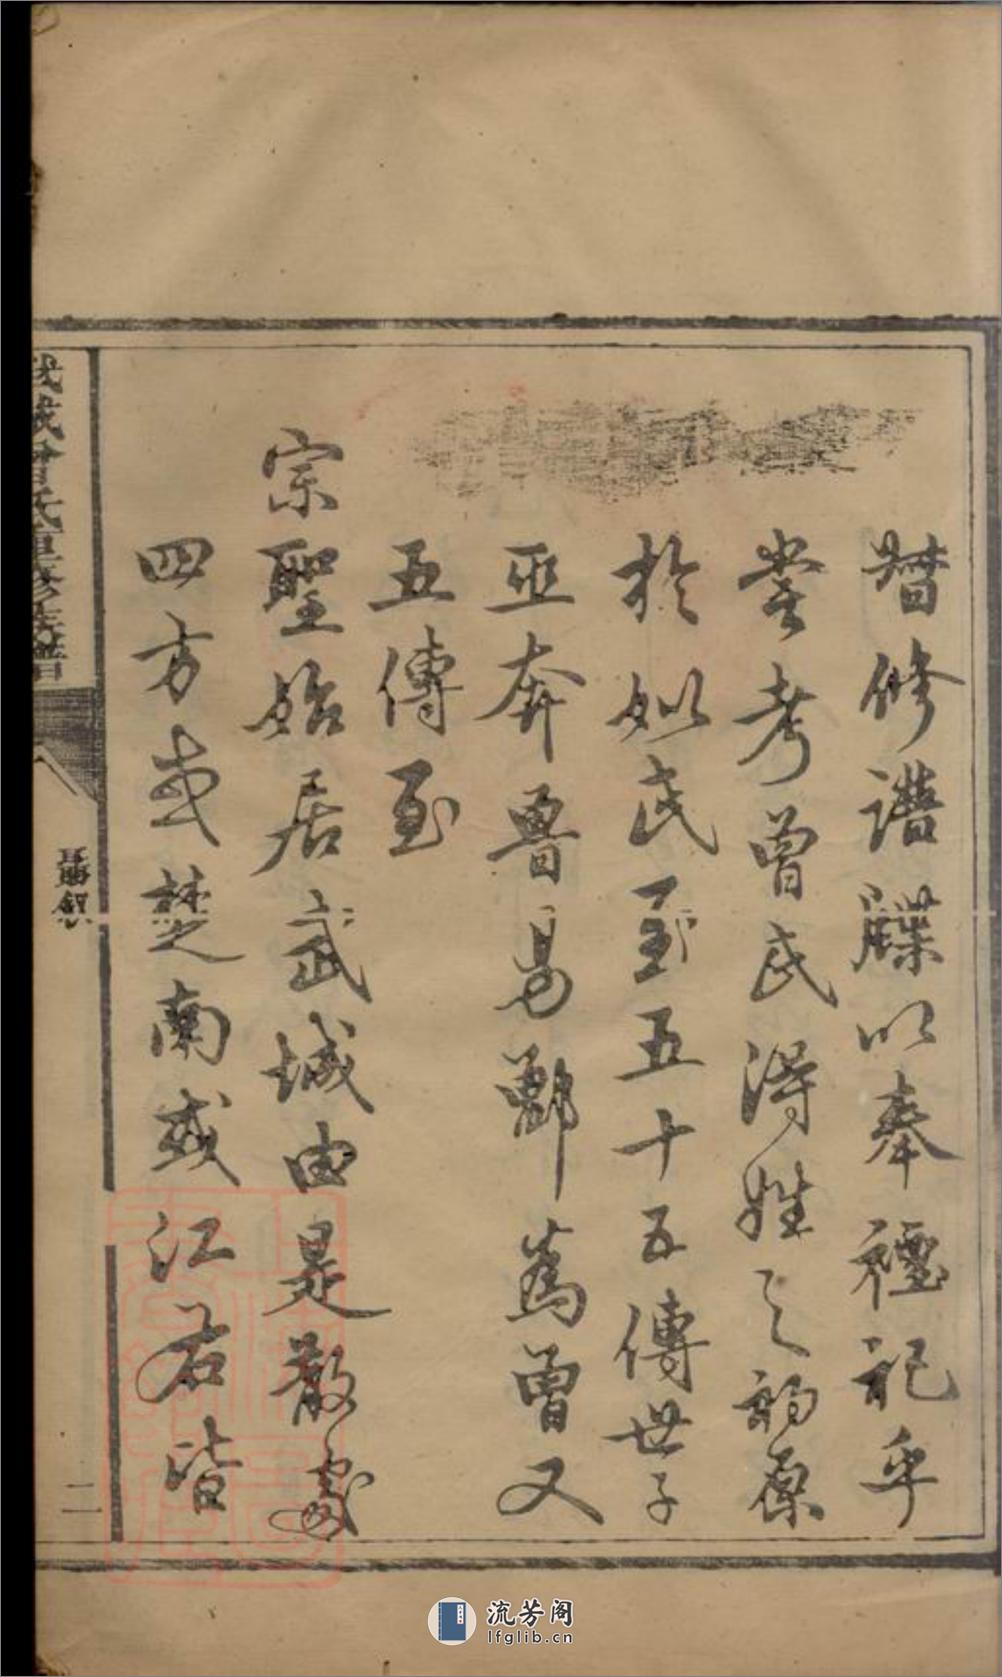 督修譜牒以奉禋祀乎
嘗考曾氏得姓之初原
於姒氏至五十五傳世子
巫奔魯易鄫為曾又
五傳至
宗聖始居武城由是散處
四方或楚南或江右皆
武城曾氏重修族譜
舊敘
二
流芳阁
lfglib.cn